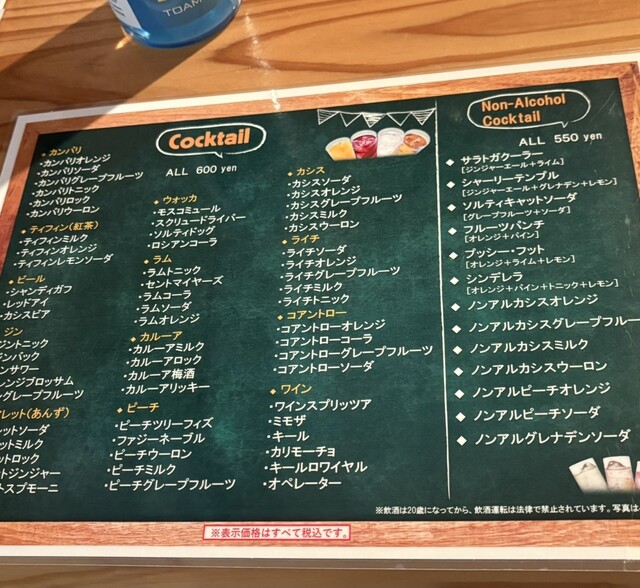 TOAM
Cocktail
ALL 600 yen
◆カンパリ
・カンパリオレンジ
・カンパリソーダ
・カンパリグレープフルーツ
・カンパリトニック
・カンパリロック
・カンパリウーロン
◆ティフィン(紅茶)
・ティフィンミルク
・ティフィンオレンジ
・ティフィンレモンソーダ
◆ビール
・シャンディガフ
・レッドアイ
・カシスビア
ジン
ジントニック
ジンバック
ンサワー
レンジブロッサム
グレープフルーツ
レット(あんず)
ットソーダ
ットミルク
ットロック
トジンジャー
スプモーニ
◆ウォッカ
・モスコミュール
・スクリュードライバー
・ソルティドッグ
・ロシアンコーラ
◆ラム
・ラムトニック
・セントマイヤーズ
・ラムコーラ
・ラムソーダ
・ラムオレンジ
◆カルーア
・カルーアミルク
・カルーアロック
・カルーア梅酒
・カルーアリッキー
◆ピーチ
・ピーチツリーフィズ
・ファジーネーブル
・ピーチウーロン
・ピーチミルク
・ピーチグレープフルーツ
◆カシス
・カシスソーダ
・カシスオレンジ
・カシスグレープフルーツ
・カシスミルク
・カシスウーロン
◆ライチ
・ライチソーダ
・ライチオレンジ
・ライチグレープフルーツ
・ライチミルク
・ライチトニック
◆コアントロー
・コアントローオレンジ
・コアントローコーラ
・コアントローグレープフルーツ
・コアントローソーダ
◆ワイン
・ワインスプリッツア
・ミモザ
・キール
・カリモーチョ
・キールロワイヤル
・オペレーター
Non-Alcohol
Cocktail
ALL 550 yen
◆サラトガクーラー
[ジンジャーエール+ライム]
◆シャーリーテンプル
[ジンジャーエール+グレナデン+レモン]
◆ソルティキャットソーダ
[グレープフルーツ+ソーダ]
◆フルーツパンチ
[オレンジ+パイン]
◆プッシー・フット
[オレンジ+ライム+レモン]
◆シンデレラ
[オレンジ+パイン+トニック+レモン]
◆ノンアルカシスオレンジ
◆ノンアルカシスグレープフルー
◆ノンアルカシスミルク
◆ノンアルカシスウーロン
◆ノンアルピーチオレンジ
◆ノンアルピーチソーダ
◆ノンアルグレナデンソーダ
※飲酒は20歳になってから、飲酒運転は法律で禁止されています。写真は
※表示価格はすべて税込です。